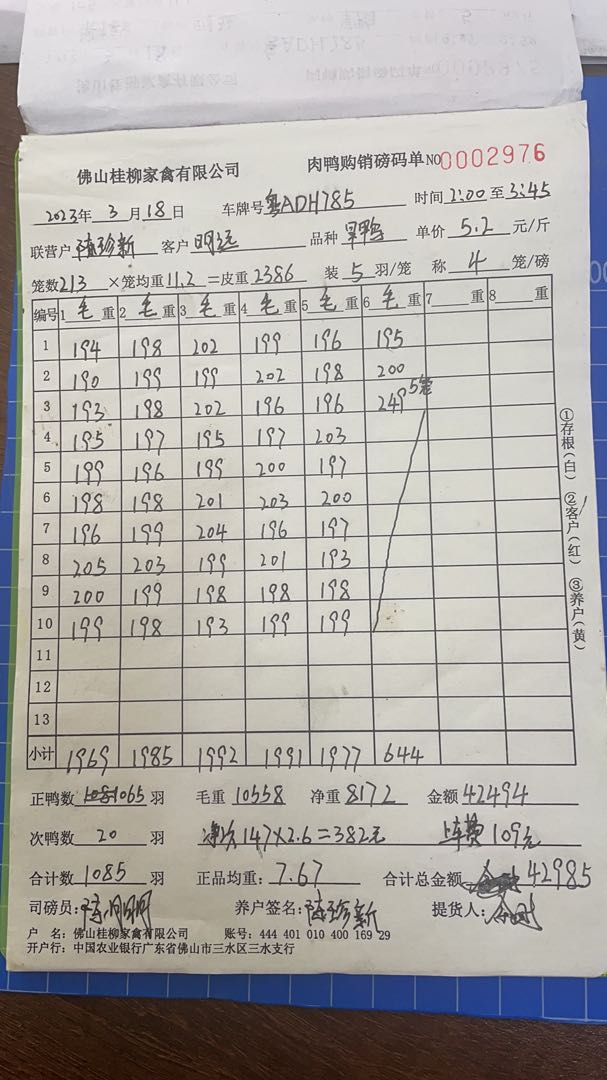 佛山桂柳家禽有限公司 肉鸭购销磅码单 NO 0002976
2023年 3月18日 车牌号 粤ADH785 时间 2:00 至 3:45
联营户 陈珍新 客户 明远 品种 旱鸭 单价 5.2 元/斤
笼数213 ×笼均重11.2 =皮重2386 装 5 羽/笼 称 4 笼/磅
编号 1 毛 重 2 毛 重 3 毛 重 4 毛 重 5 毛 重 6 毛 重 7 重 8 重
1 194 198 202 199 196 195
2 190 199 199 202 198 200
3 193 198 202 196 196 249 5笼
4 195 197 195 197 203
5 199 196 199 200 197
6 198 198 201 203 200
7 196 199 204 196 197
8 205 203 199 201 193
9 200 199 198 198 198
10 199 198 193 199 199
11
12
13
小计 1969 1985 1992 1991 1977 644
①存根(白) ②客户(红) ③养户(黄)
正鸭数 1065 羽 毛重 10558 净重 8172 金额 42494
次鸭数 20 羽 147×2.6=382元 109元
合计数 1085 羽 正品均重: 7.67 合计总金额 42985
司磅员: 养户签名: 陈珍新 提货人:
户 名: 佛山桂柳家禽有限公司 账号: 444 401 010 400 169 29
开户行: 中国农业银行广东省佛山市三水区三水支行